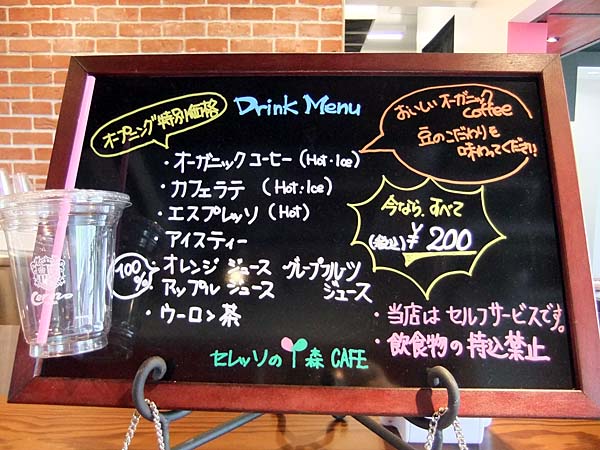 Drink Menu
オープニング特別価格
おいしいオーガニック
coffee
豆のこだわりを
味わってください!!
・オーガニックコーヒー (Hot・Ice)
・カフェラテ (Hot・Ice)
・エスプレッソ (Hot)
・アイスティー
100%
・オレンジジュース グレープフルーツ
アップルジュース ジュース
・ウーロン茶
今なら、すべて
(税込)¥200
・当店はセルフサービスです。
・飲食物の持込禁止
セレッソの森 CAFE